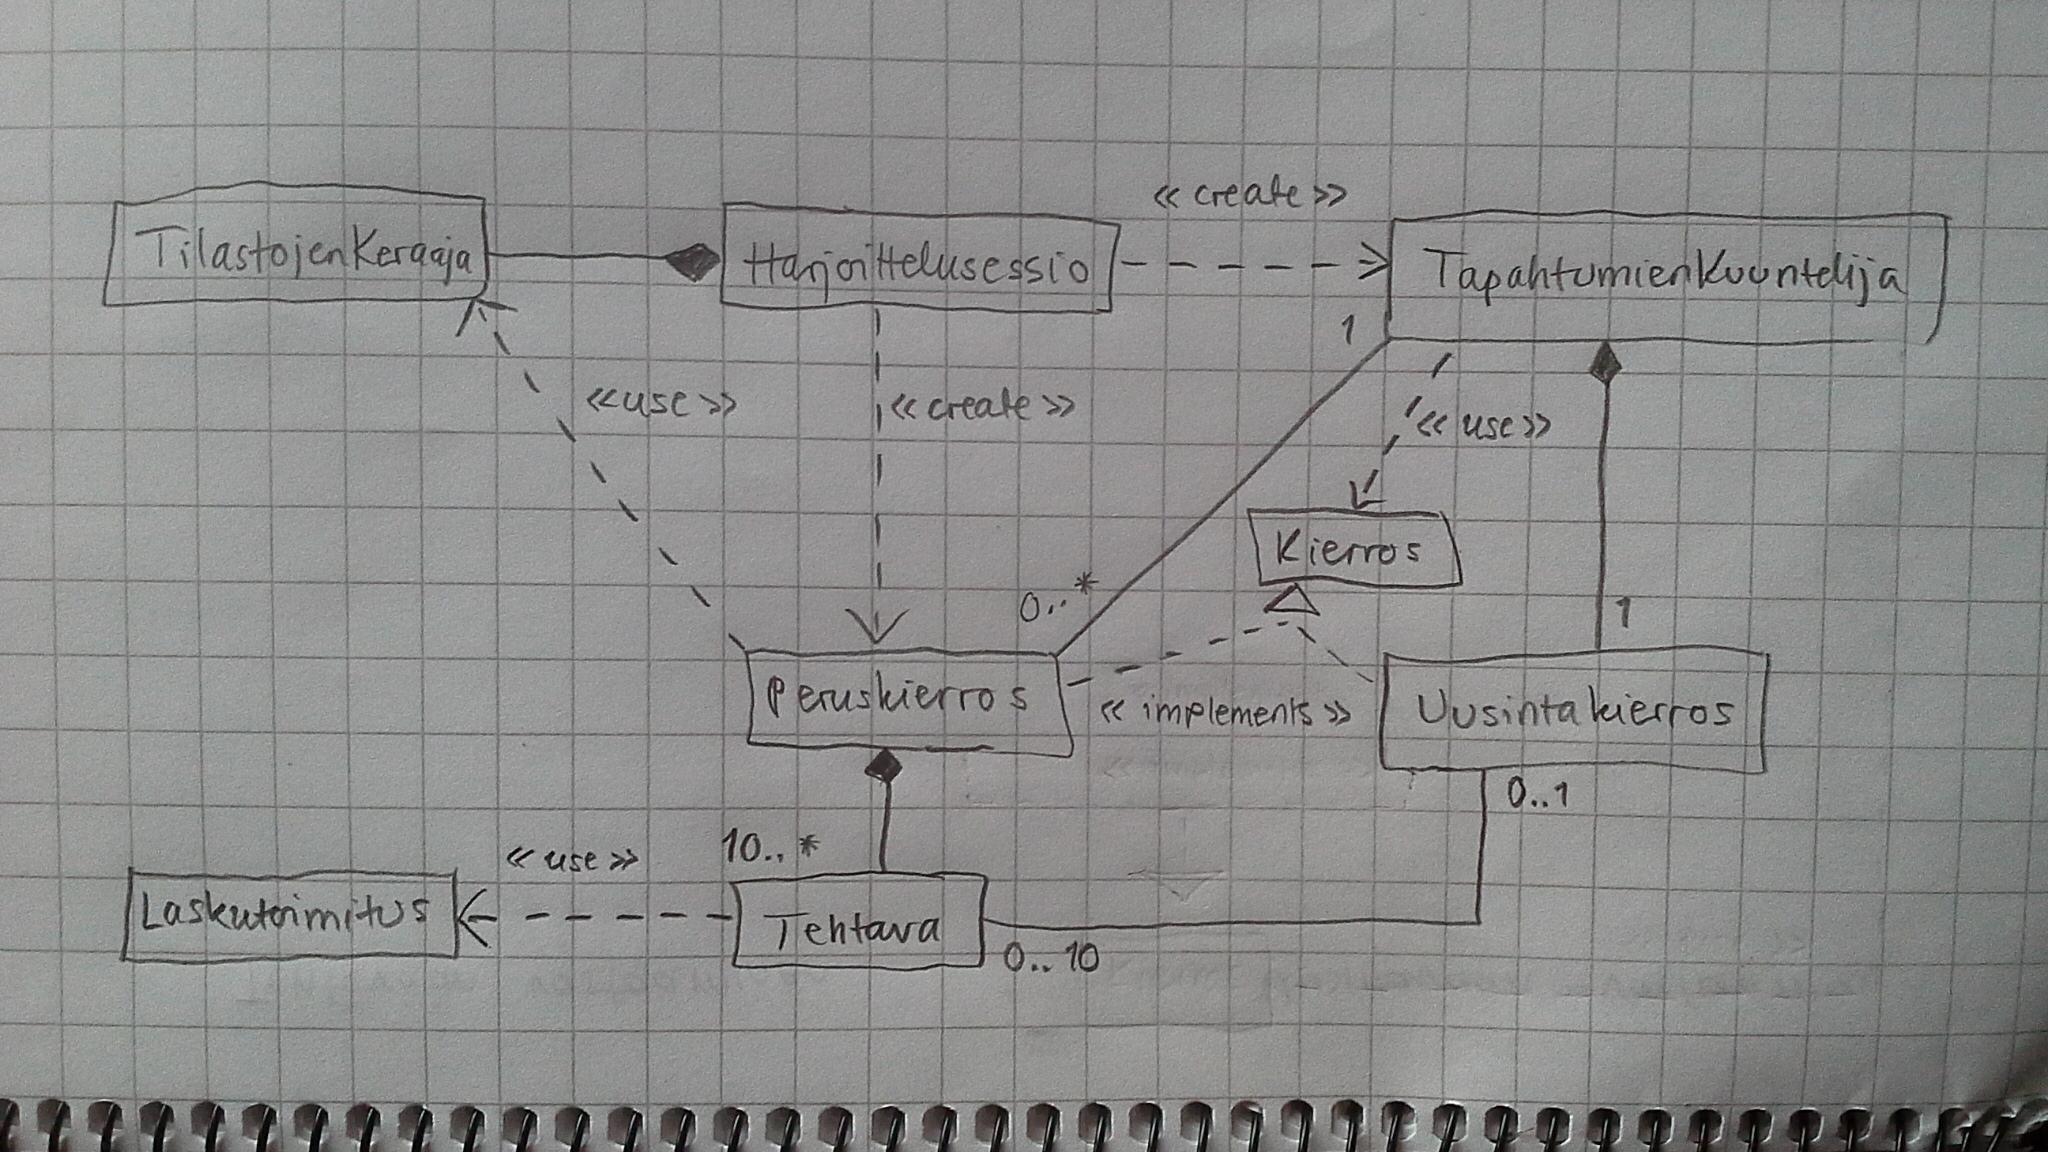 << create >>
TilastojenKeraaja
Harjoittelusessio
TapahtumienKuuntelija
1
<<use>>
<< create >>
<< use >>
Kierros
0..*
1
Peruskierros
<< implements >>
Uusintakierros
0..1
10..*
<< use >>
Laskutoimitus
Tehtava
0..10